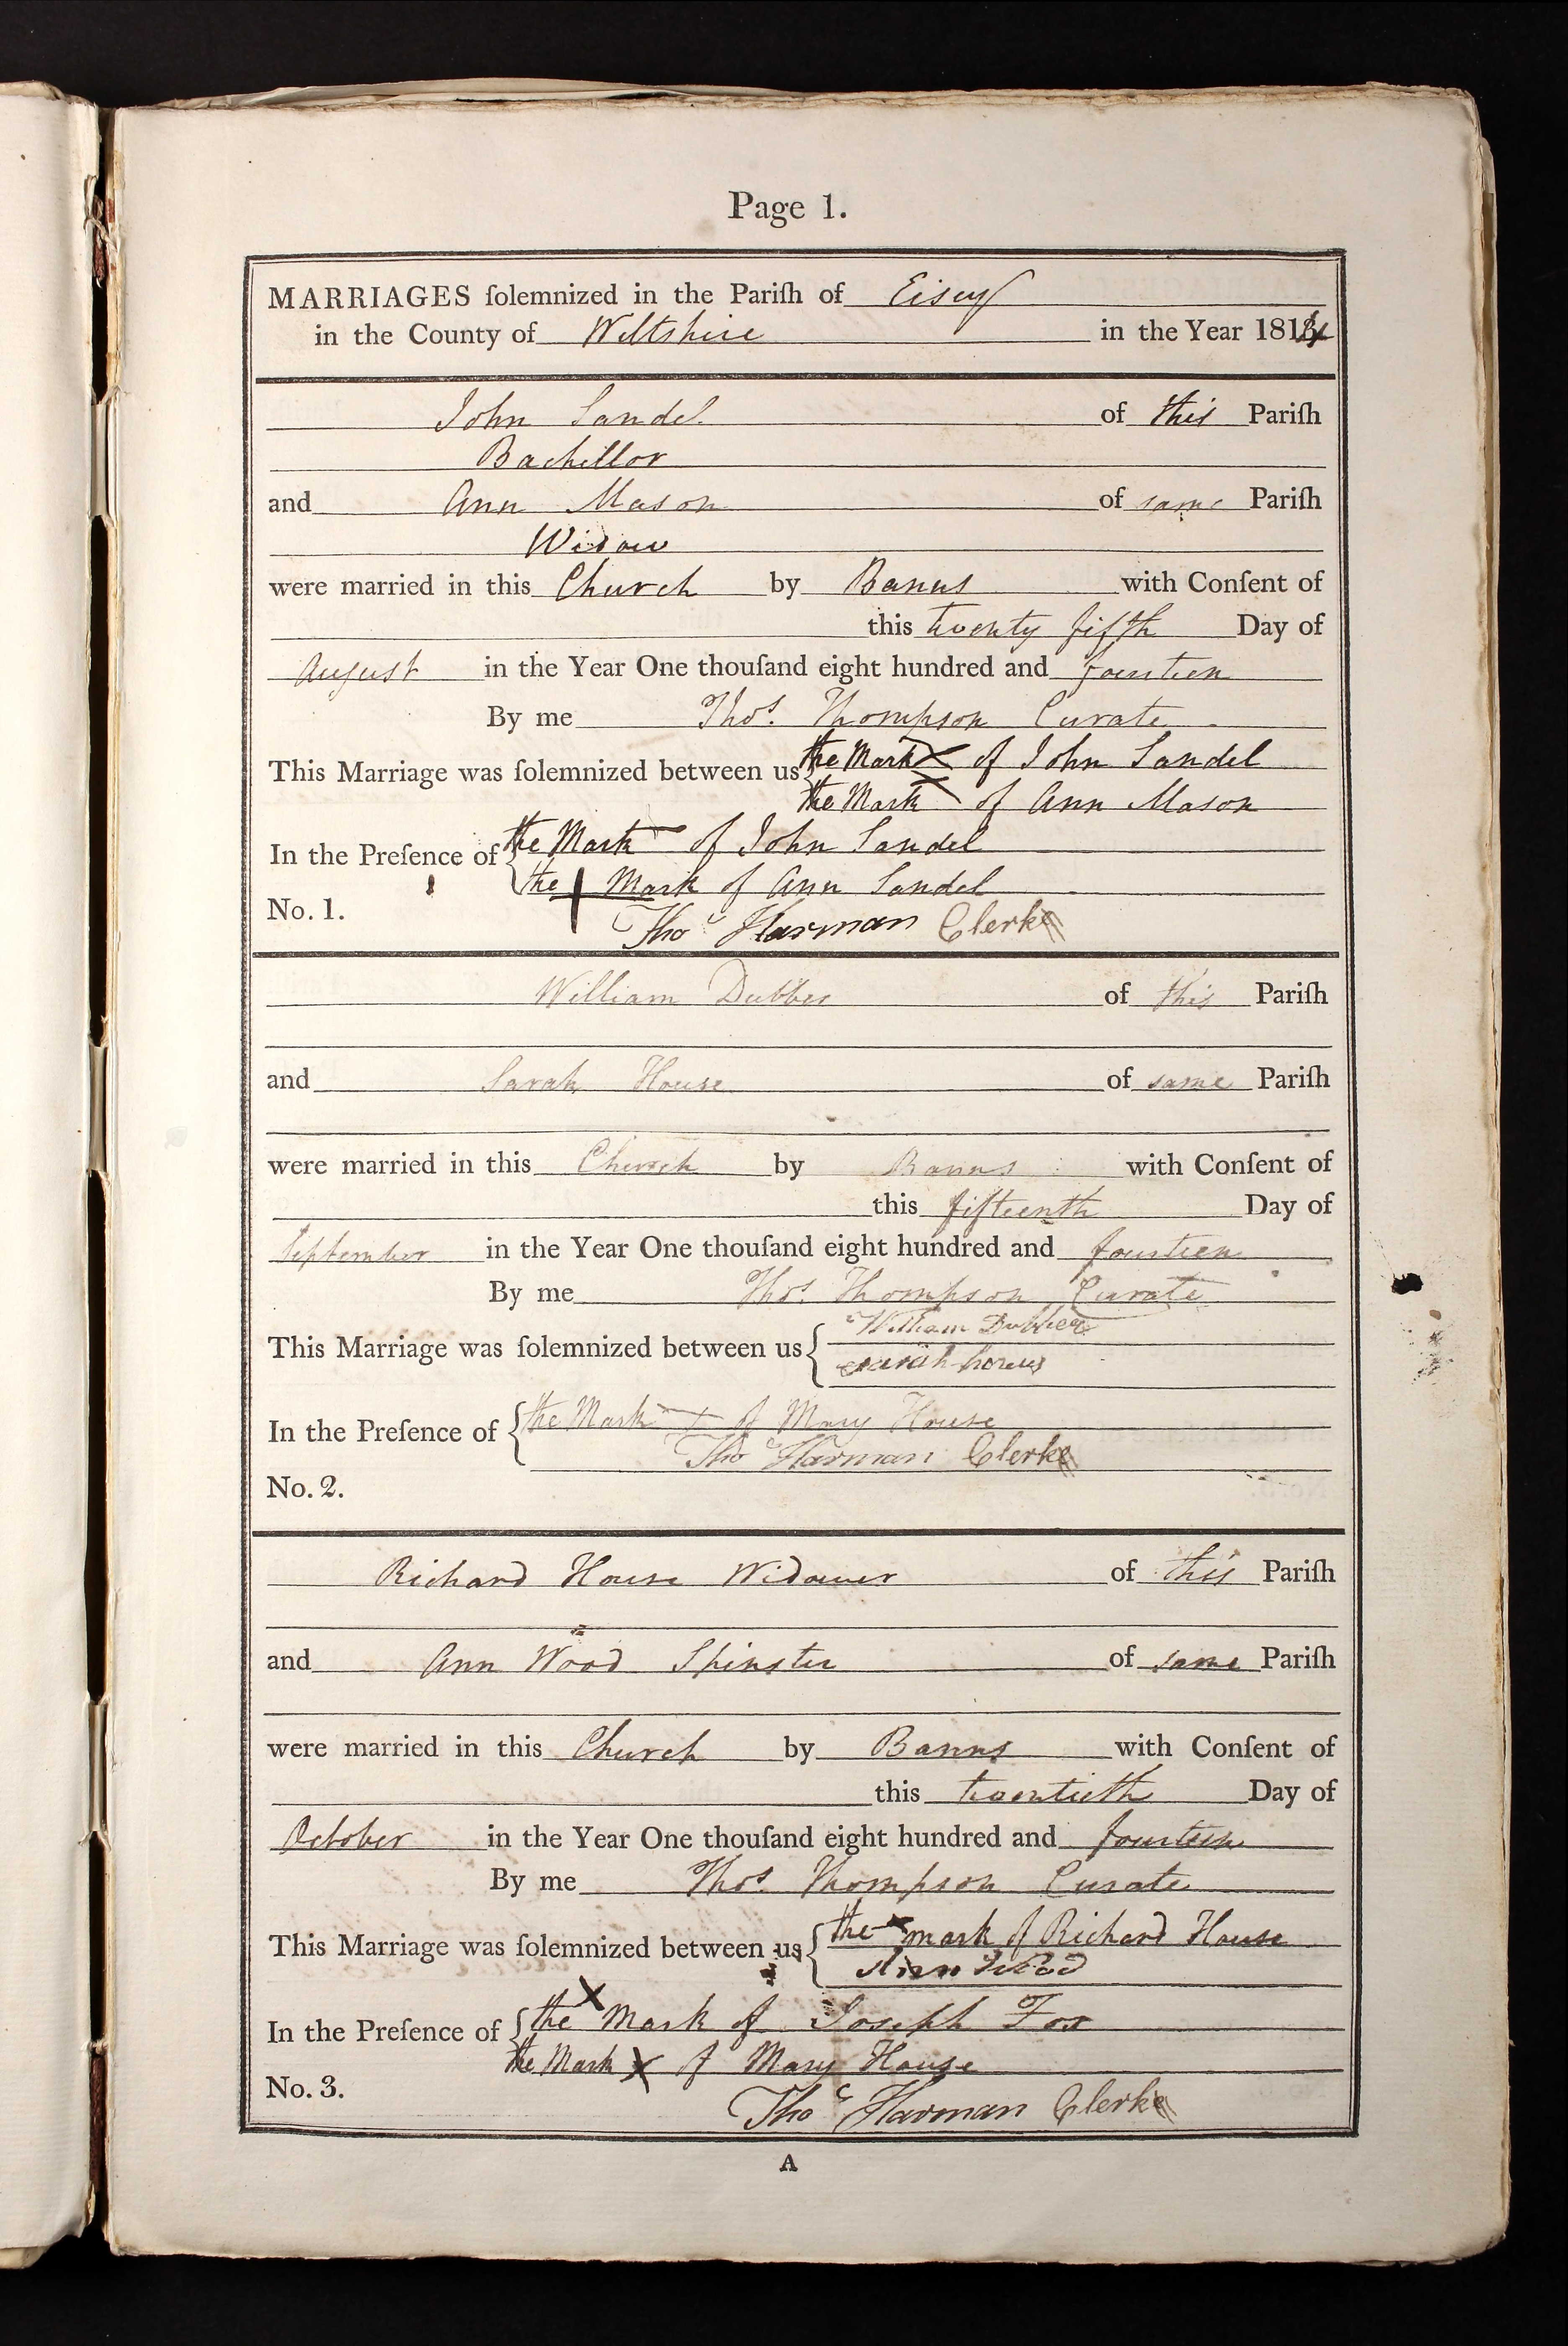 Page 1.
MARRIAGES ſolemnized in the Pariſh of Eisey
in the County of Wiltshire in the Year 1814
John Sandel of this Pariſh
Bachellor
and Ann Mason of same Pariſh
Widow
were married in this Church by Banns with Conſent of
this twenty fifth Day of
August in the Year One thouſand eight hundred and fourteen
By me Thos. Thompson Curate
This Marriage was ſolemnized between us the Mark X of John Sandel
the Mark X of Ann Mason
In the Preſence of the Mark of John Sandel
the + Mark of Ann Sandel
No. 1.
Thos Harman Clerke
William Dubber of this Pariſh
and Sarah House of same Pariſh
were married in this Church by Banns with Conſent of
this fifteenth Day of
September in the Year One thouſand eight hundred and fourteen
By me Thos. Thompson Curate
This Marriage was ſolemnized between us William Dubber
sarah
In the Preſence of the Mark + of Mary House
Thos Harman Clerke
No. 2.
Richard House Widower of this Pariſh
and Ann Wood Spinster of same Pariſh
were married in this Church by Banns with Conſent of
this twentieth Day of
October in the Year One thouſand eight hundred and fourteen
By me Thos. Thompson Curate
This Marriage was ſolemnized between us the x mark of Richard House
Ann Wood
In the Preſence of the X Mark of Joseph Fox
the Mark X of Mary House
No. 3.
Thos Harman Clerke
A